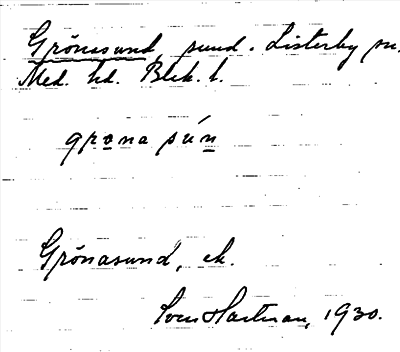 Grönasund, sund. Listerby sn.
Med. hd. Blek. l.
grona sún
Grönasund, ek.
Sven Hartman, 1930.